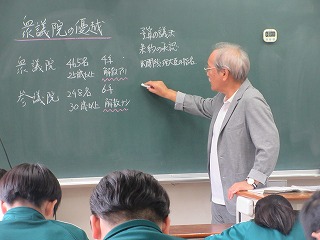 衆議院の優越
衆議院 465名 4年
25歳以上 解散アリ
参議院 248名 6年
30歳以上 解散ナシ
予算の議決
条約の承認
内閣総理大臣の指名